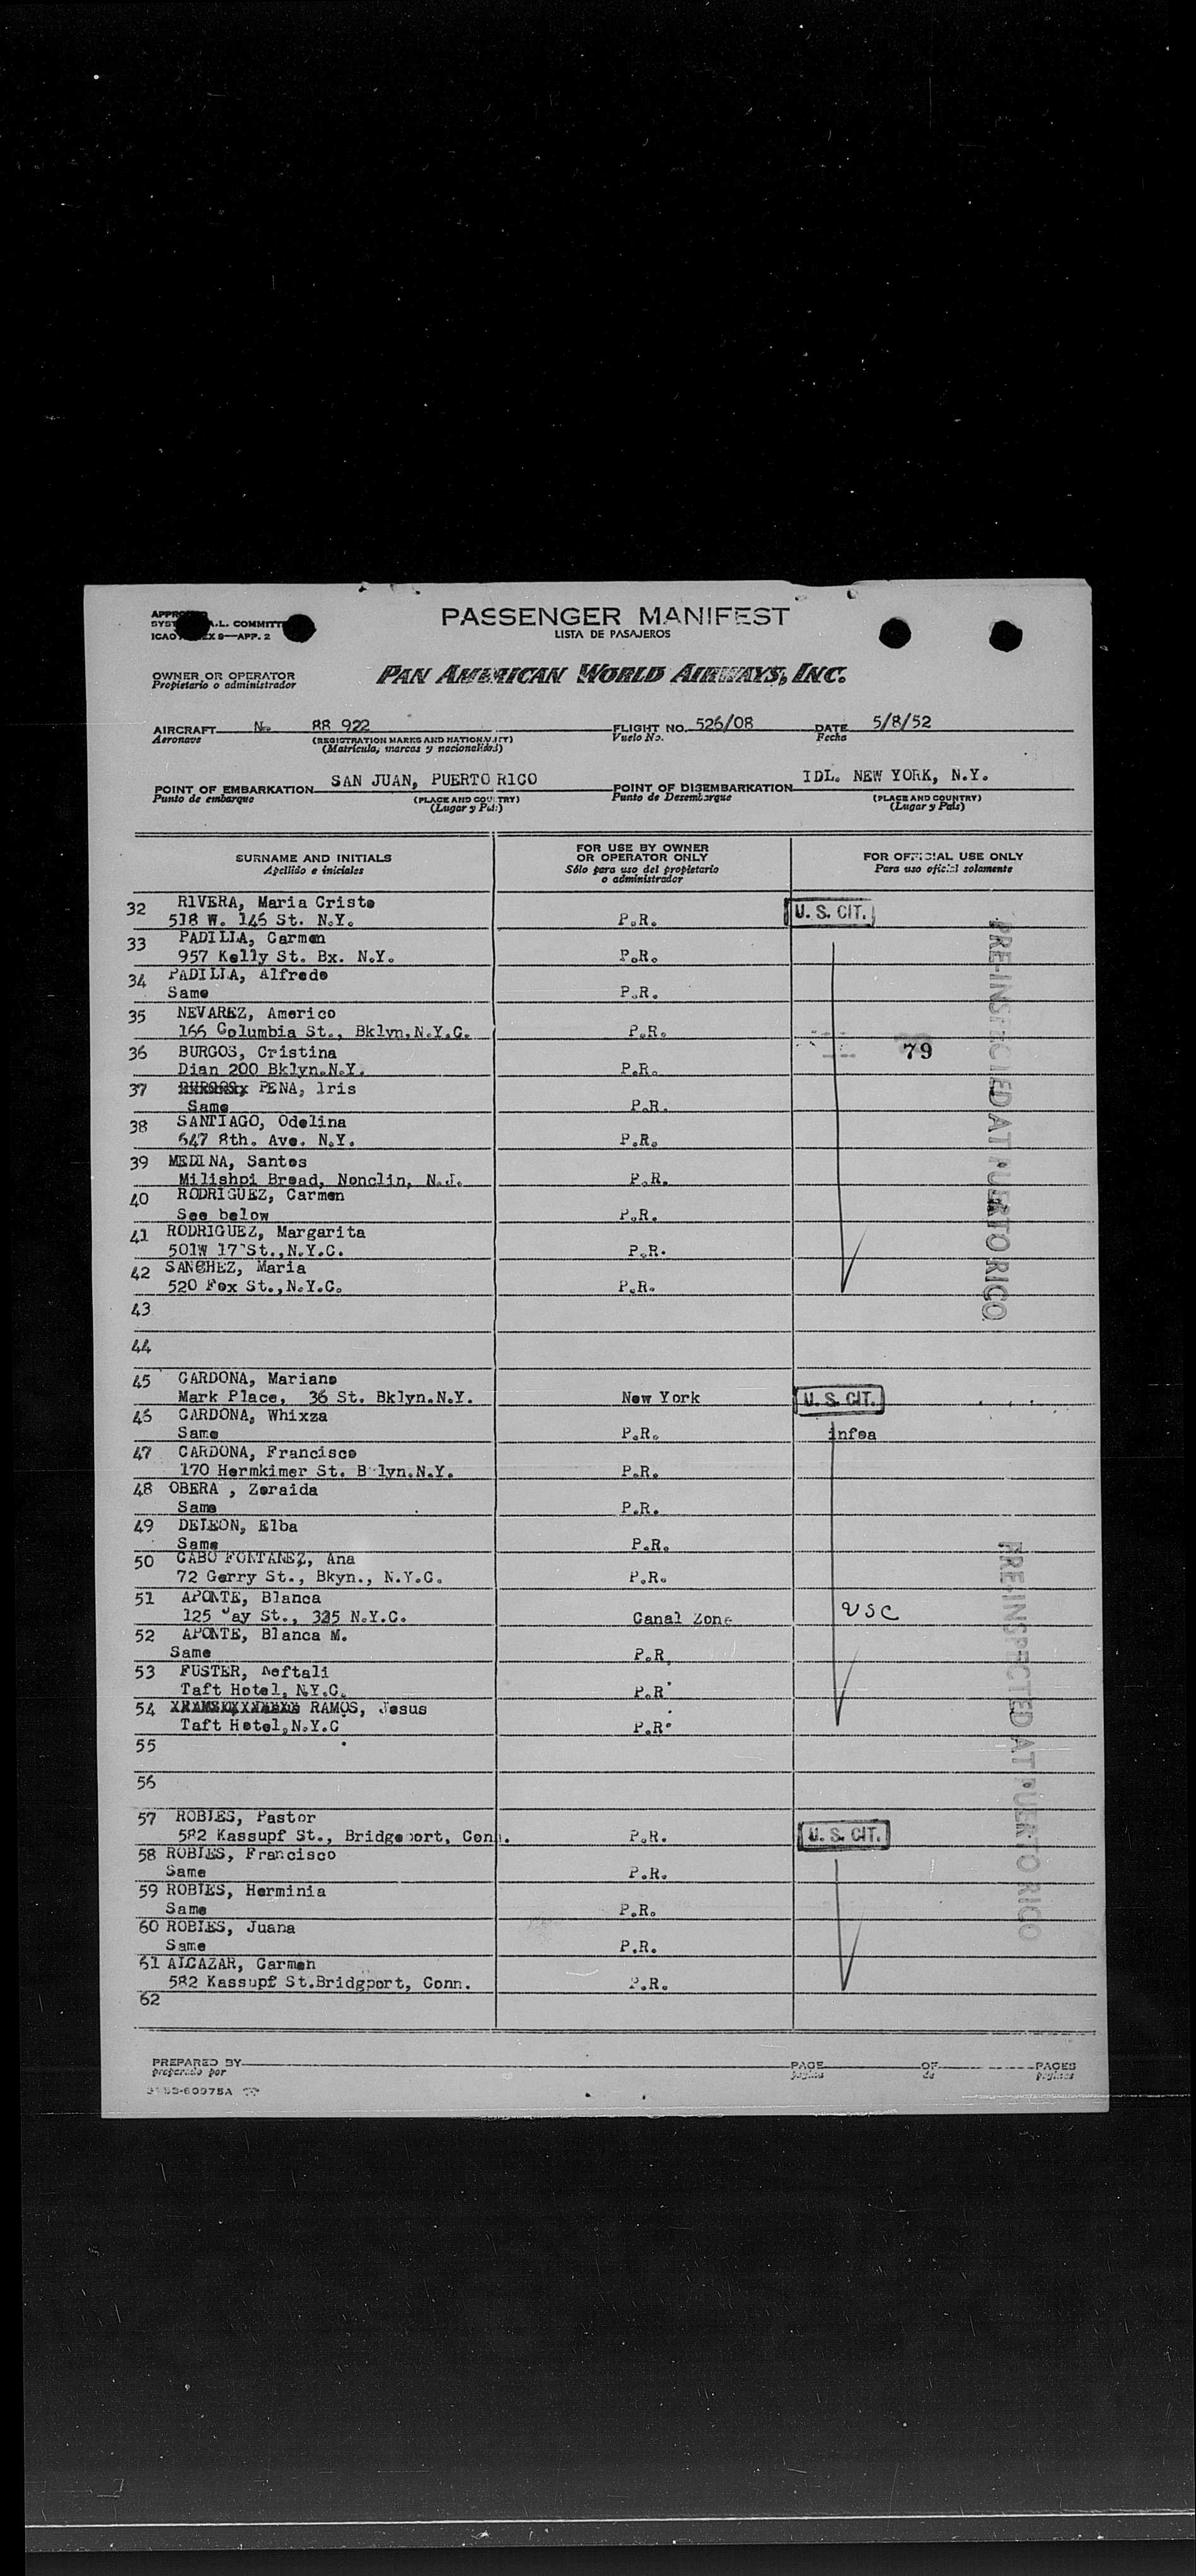 PASSENGER MANIFEST
LISTA DE PASAJEROS
ICAO EX 9—APP. 2
OWNER OR OPERATOR
Propietario o administrador
PAN AMERICAN WORLD AIRWAYS, INC.
AIRCRAFT N. 88 922 FLIGHT NO. 526/08 DATE 5/8/52
Aeronave (REGISTRATION MARKS AND NATIONALITY) Vuelo No. Fecha
(Matrícula, marcas y nacionalidad)
POINT OF EMBARKATION SAN JUAN, PUERTO RICO POINT OF DISEMBARKATION IDL. NEW YORK, N.Y.
Punto de embarque (PLACE AND COUNTRY) Punto de Desembarque (PLACE AND COUNTRY)
(Lugar y País) (Lugar y País)
SURNAME AND INITIALS
Apellido e iniciales
FOR USE BY OWNER
OR OPERATOR ONLY
Sólo para uso del propietario
o administrador
FOR OFFICIAL USE ONLY
Para uso oficial solamente
32 RIVERA, Maria Criste
518 W. 146 St. N.Y. P.R. U. S. CIT.
33 PADILLA, Carmen
957 Kelly St. Bx. N.Y. P.R.
34 PADILLA, Alfredo
Same P.R.
35 NEVAREZ, Americo
166 Columbia St., Bklyn.N.Y.C. P.R.
36 BURGOS, Cristina 79
Dian 200 Bklyn.N.Y. P.R.
37 PENA, Iris
Same P.R.
38 SANTIAGO, Odelina
647 8th. Ave. N.Y. P.R.
39 MEDINA, Santos
Milishpi Broad, Nonclin, N.J. P.R.
40 RODRIGUEZ, Carmen
See below P.R.
41 RODRIGUEZ, Margarita
501W 17 St.,N.Y.C. P.R.
42 SANCHEZ, Maria
520 Fox St.,N.Y.C. P.R.
PRE-INSPECTED AT PUERTO RICO
43
44
45 CARDONA, Mariano
Mark Place, 36 St. Bklyn.N.Y. New York U. S. CIT.
46 CARDONA, Whixza
Same P.R. infoa
47 CARDONA, Francisco
170 Hermkimer St. B lyn.N.Y. P.R.
48 OBERA , Zoraida
Same P.R.
49 DELEON, Elba
Same P.R.
50 CABO FONTANEZ, Ana
72 Gerry St., Bkyn., N.Y.C. P.R.
51 APONTE, Blanca
125 Jay St., 325 N.Y.C. Canal Zone USC
52 APONTE, Blanca M.
Same P.R.
53 FUSTER, Neftali
Taft Hotel, N.Y.C. P.R.
54 RAMOS, Jesus
Taft Hotel,N.Y.C P.R.
55
56
57 ROBLES, Pastor
582 Kassupf St., Bridgeport, Conn. P.R. U. S. CIT.
58 ROBLES, Francisco
Same P.R.
59 ROBLES, Herminia
Same P.R.
60 ROBLES, Juana
Same P.R.
61 ALCAZAR, Carmen
582 Kassupf St.Bridgport, Conn. P.R.
62
PRE-INSPECTED AT PUERTO RICO
PREPARED BY PAGE OF PAGES
preparado por página de páginas